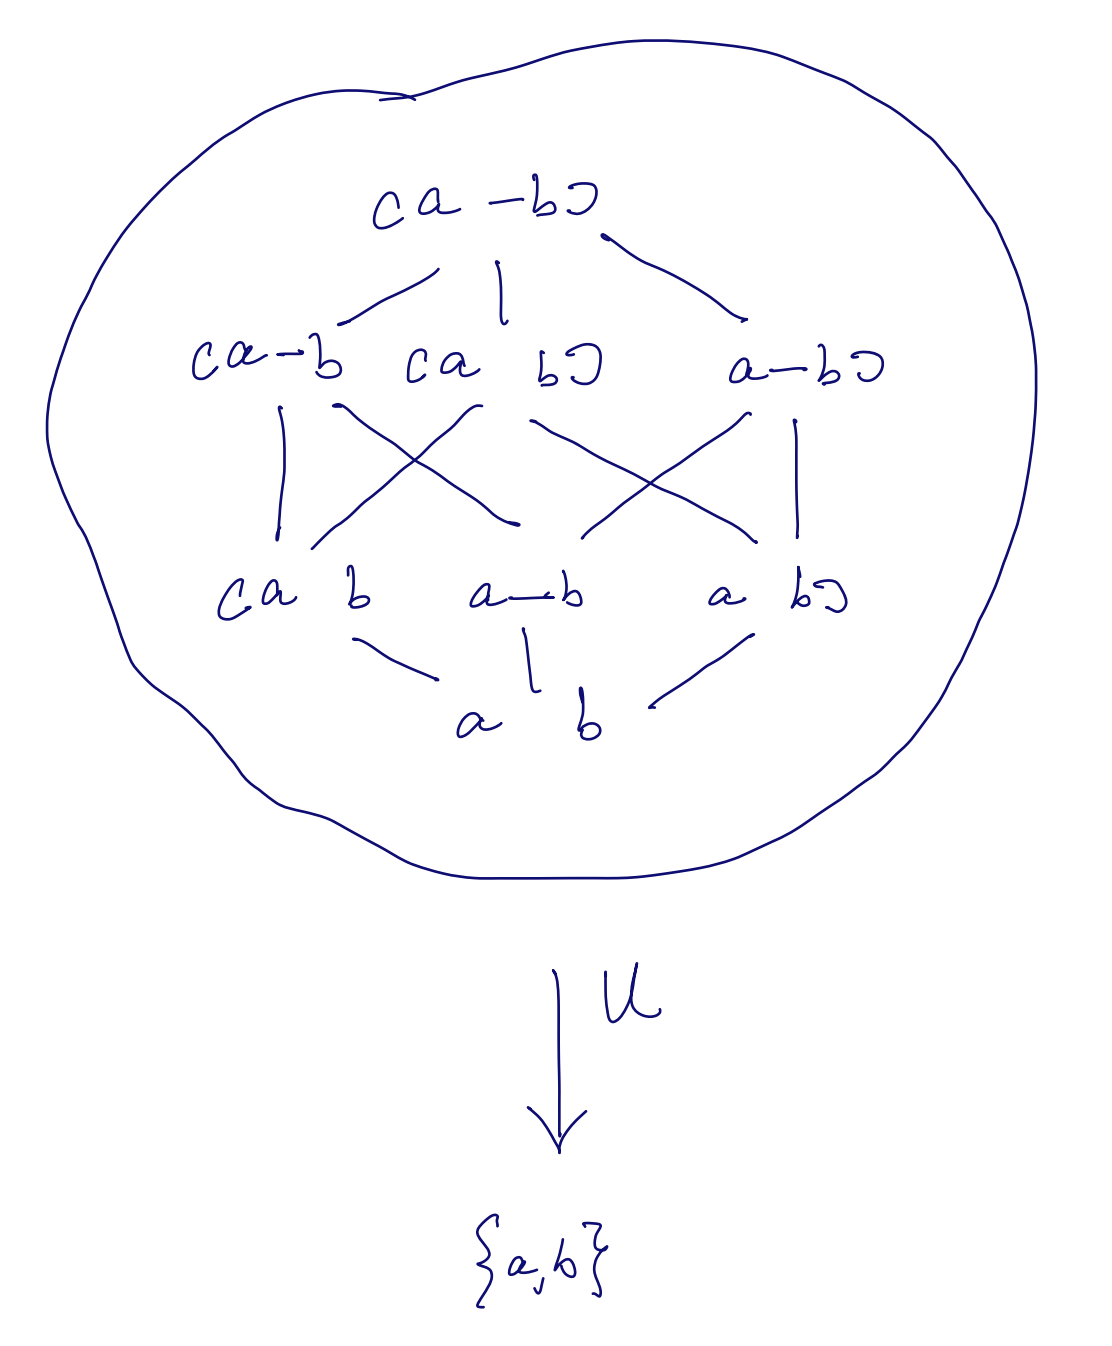 ca-bɔ
ca-b ca bɔ a-bɔ
ca b a-b a bɔ
a b
U
{a,b}